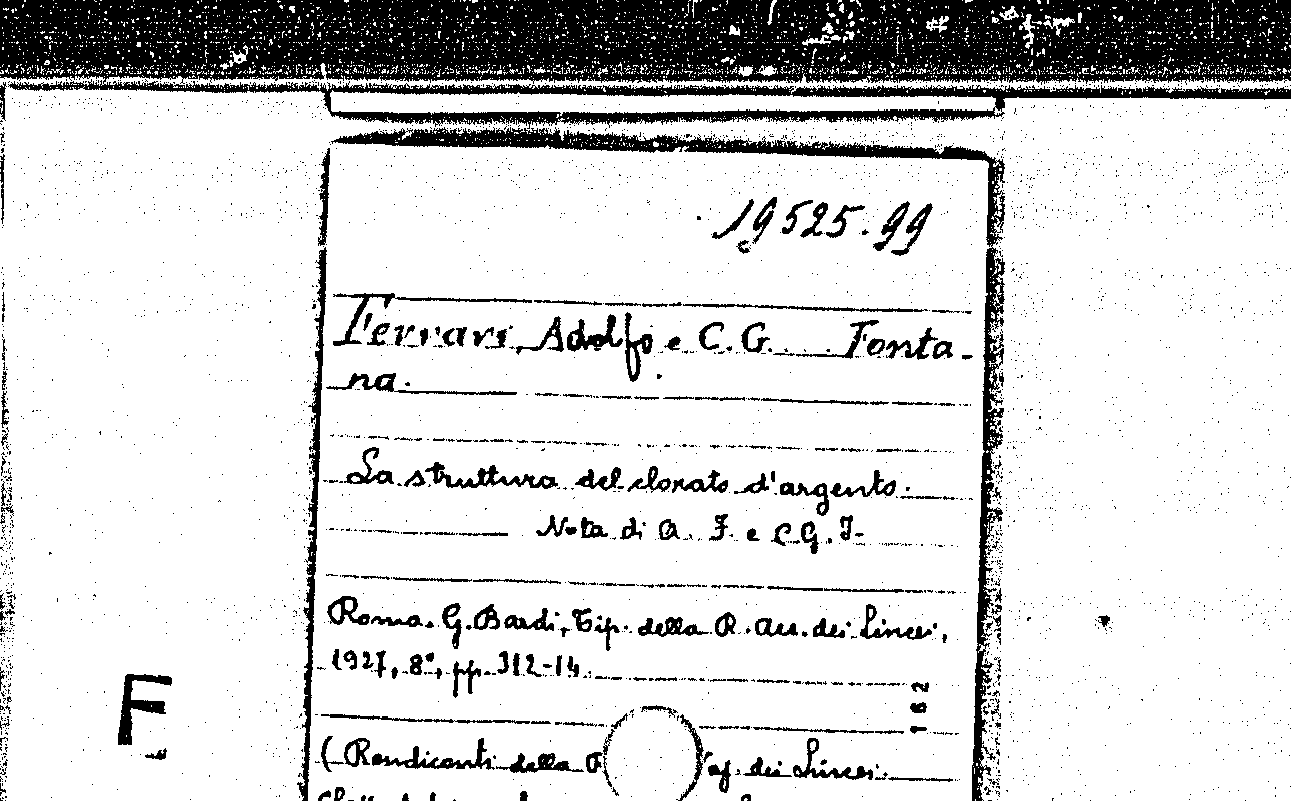 19525.99
Ferrari, Adolfo e C.G. Fonta-
na.
La struttura del clorato d'argento.
Nota di A. F. e C.G.F.
Roma. G. Bardi, Tip. della R. Acc. dei Lincei,
1927, 8°, pp. 312-14.
162
F
( Rendiconti della dei Lincei.